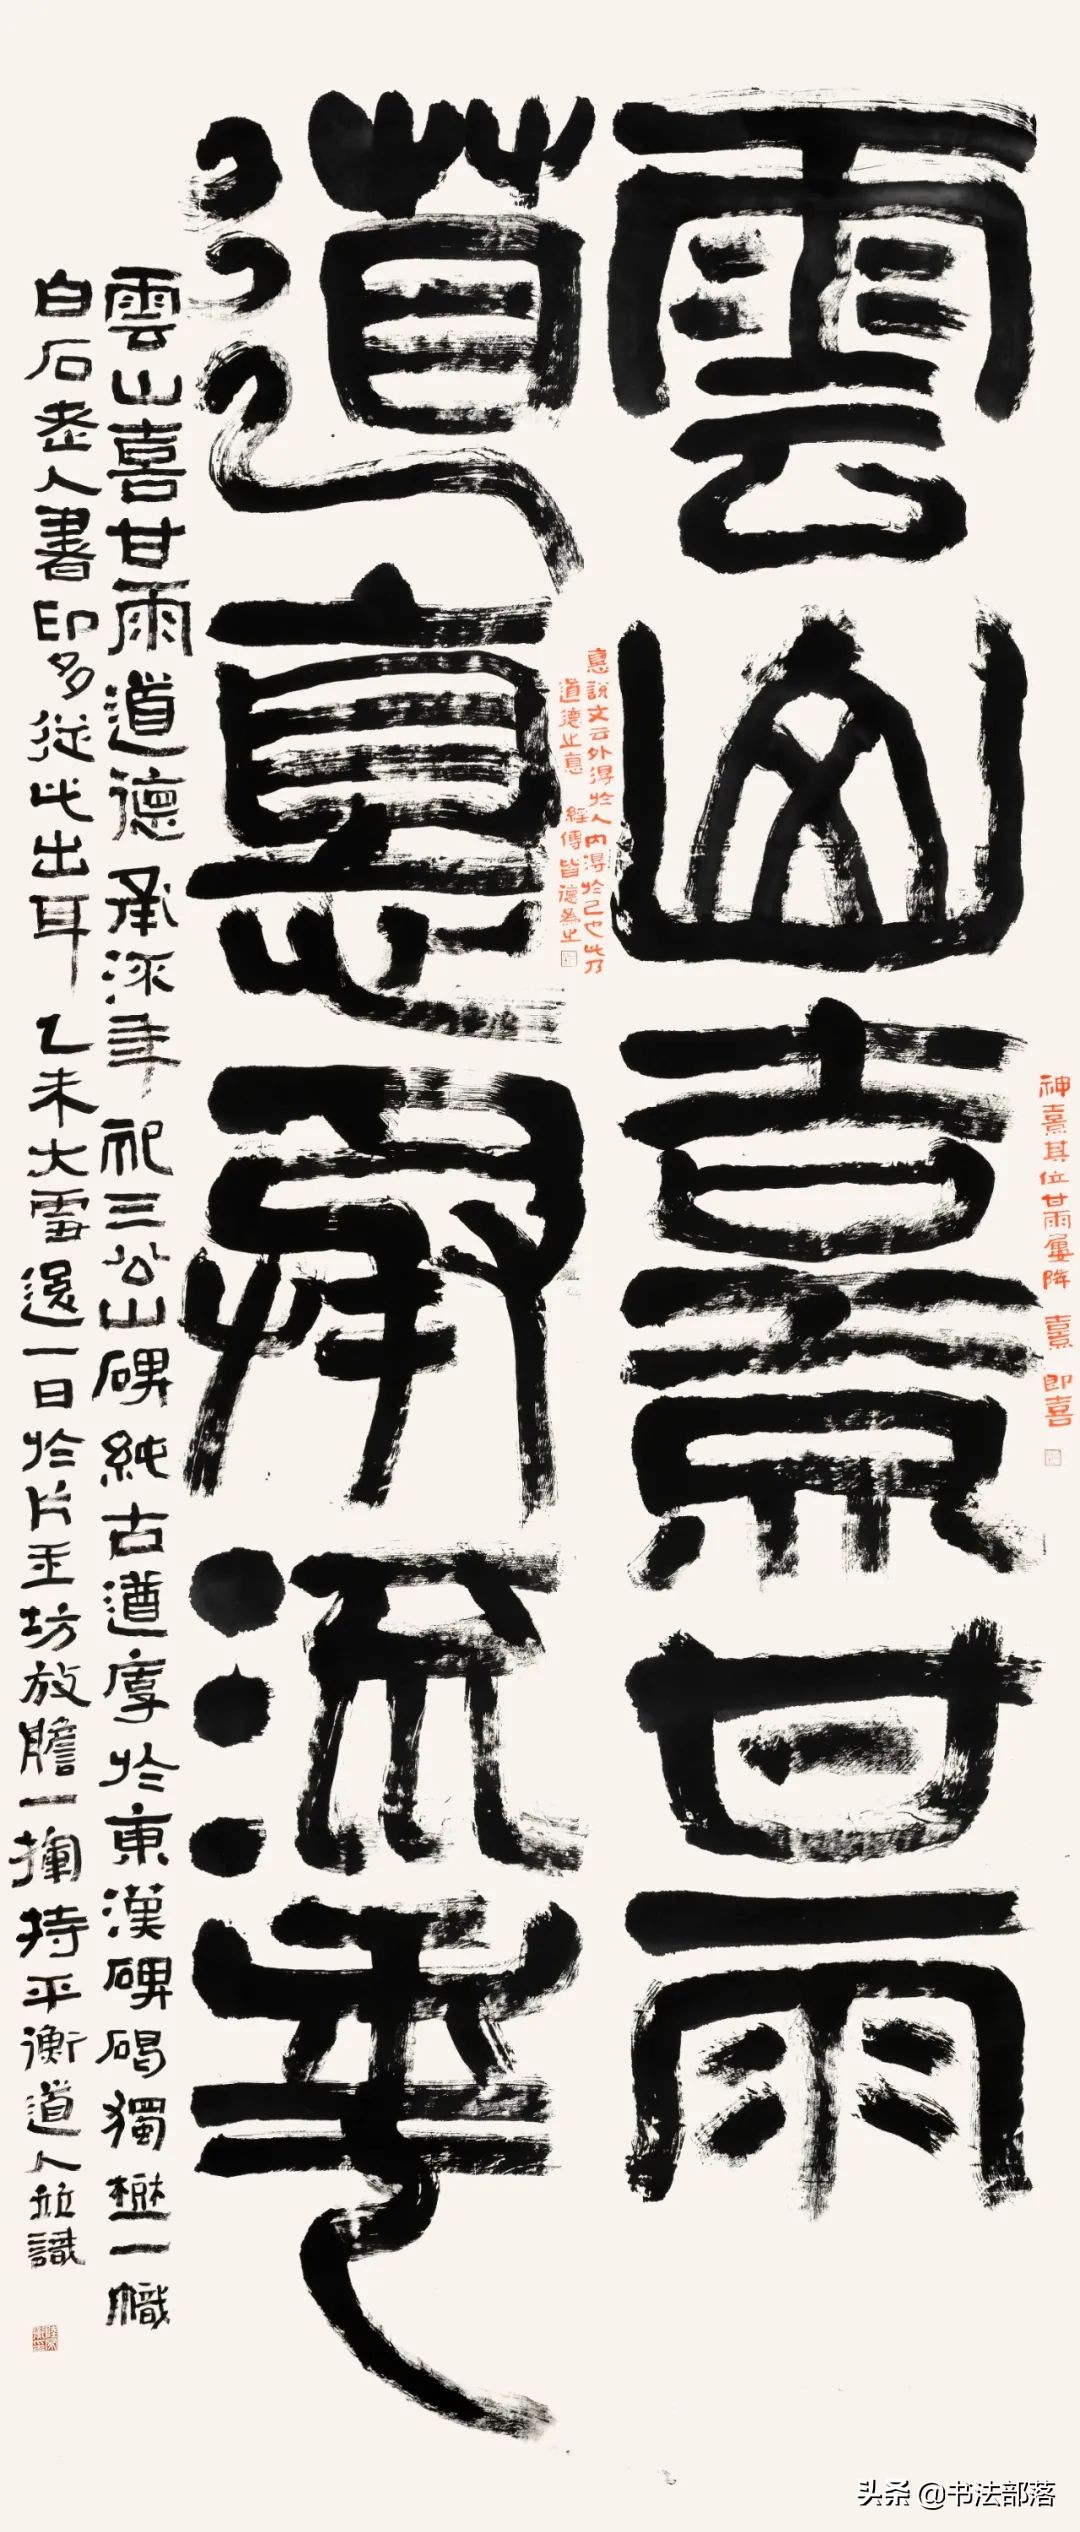 雲山憙甘雨
道悳承流年
神憙其位甘雨屢降 憙 即喜
悳說文云外得於人內得於己也此乃
道德之悳 經傳皆德爲之
雲山喜甘雨道德承流年祀三公山碑純古遒厚於東漢碑碣獨樹一幟
白石老人書印多從此出耳 乙未大雪後一日於片玉坊放膽一揮持平衡道人並識
头条 @书法部落